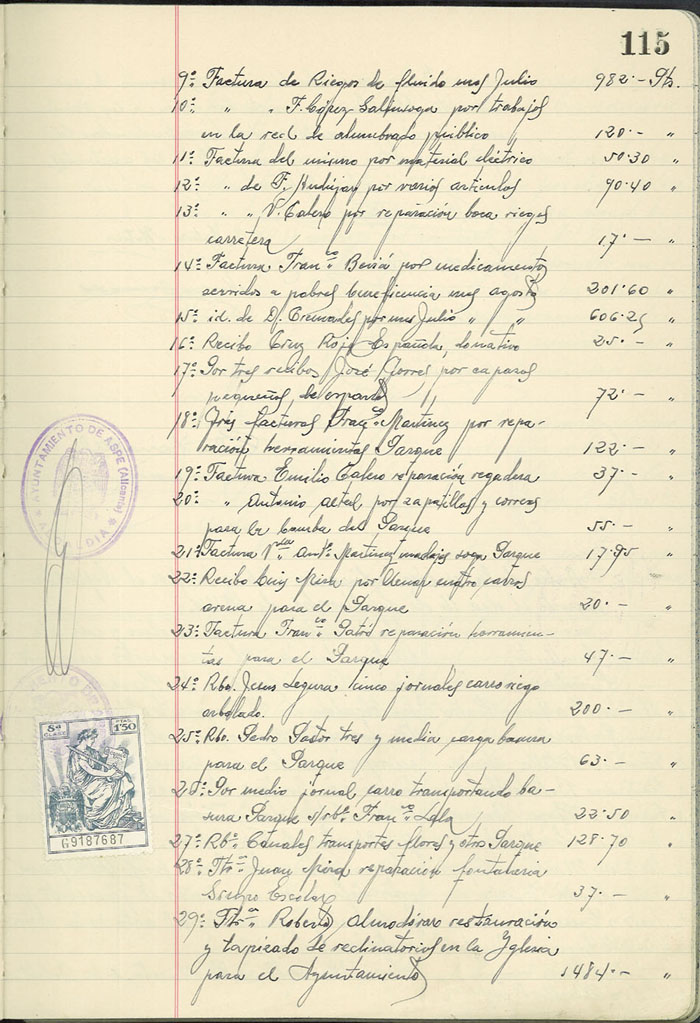 115
9º Factura de Riegos de fluido mes Julio 982·- Pts.
10º " " F. López por trabajos
en la red de alumbrado público 120·- "
11º Factura del mismo por material eléctrico 50·30 "
12º " de F. por varios artículos 90·40 "
13º " " V. Calero por reparación boca riegos
carretera 17·- "
14º Factura Franco. por medicamentos
servidos a pobres beneficencia mes agosto 201·60 "
15º id. de D. Cremades por mes Julio " " 606·25 "
16º Recibo Cruz Roja Española, donativo 25·- "
17º Por tres recibos José Torres, por capazos
pequeños, de esparto 72·- "
18º Tres facturas Franco. Martínez por repa-
ración herramientas Parque 122·- "
19º Factura Emilio Calero reparación regadera 37·- "
20º " Antonio por zapatillas y correas
para la bomba del Parque 55·- "
21º Factura Vda. Antº. Martínez madejas soga Parque 17·95 "
22º Recibo Luis Mira por cuatro carros
arena para el Parque 20·- "
23º Factura Franco. reparación herramien-
tas para el Parque 47·- "
24º Rbo. Jesús Segura cinco jornales carro riego
arbolado. 200·- "
25º Rbo. Pedro Pastor tres y media carga basura
para el Parque 63·- "
26º Por medio jornal carro transportando ba-
sura Parque s/rbº. Franco. 22·50 "
27º Rbº. Canales transportes flores y otros Parque 128·70 "
28º Ftrª. Juan Mira reparación fontanería
Grupo Escolar 37·- "
29º Ftrª. Roberto Almodóvar restauración
y tapizado de reclinatorios en la Iglesia
para el Ayuntamiento 1484·- "
AYUNTAMIENTO DE ASPE (Alicante)
ALCALDIA
8ª CLASE
PTAS. 1'50
G9187687